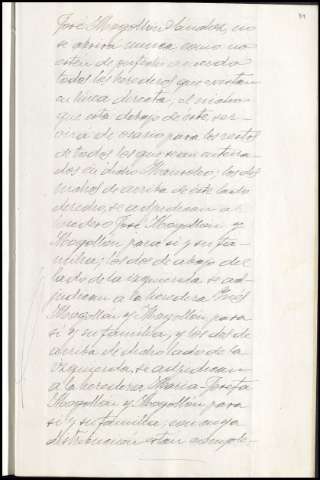 José Mogollón Handos, no
se abrirá nunca como no
estén de perfecto acuerdo
todos los herederos que existan
en línea directa; el nicho
que está debajo de este, ser-
virá de osario para los restos
de todos los que sean enterra-
dos en dicho Mausoleo; los dos
nichos de arriba de este lado
derecho, se adjudican al
heredero José Mogollón y
Mogollón para si y su fa-
milia; los dos de abajo del
lado de la izquierda se ad-
judican a la heredera Inés
Mogollón y Mogollón para
si y su familia, y los dos de
arriba de dicho lado de la
izquierda, se adjudican
a la heredera María Josefa
Mogollón y Mogollón para
si y su familia; con cuya
distribución están comple-